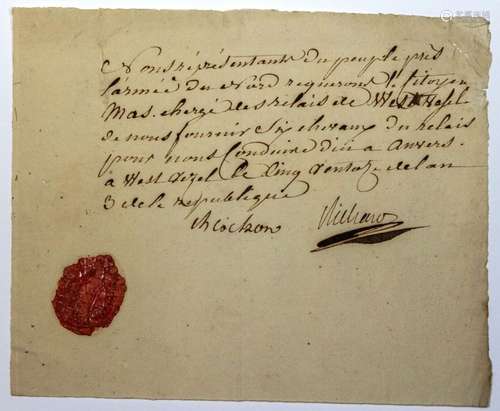 Nous réprésentants du peuple près
l'armée du Nord requerons le Citoyen
Mas chargé des relais de West Vesel
de nous fournir six chevaux du relais
pour nous Conduire dici a anvers.
à West Vezel le Cinq Ventoze de lan
3 de la republique
Richard